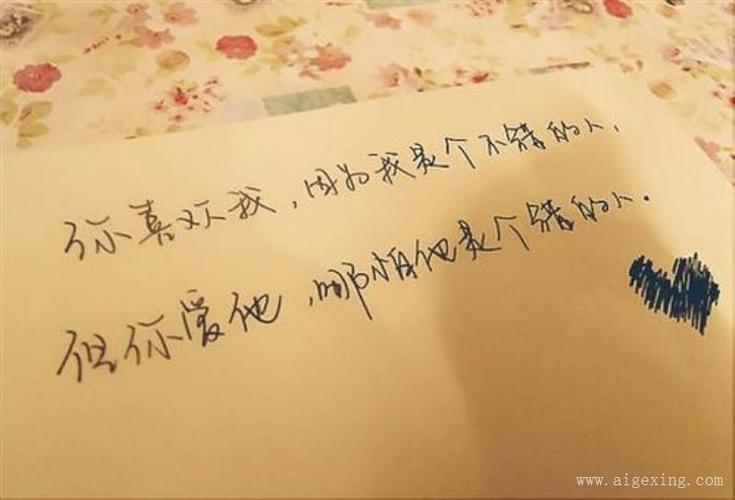 你喜欢我，因为我是个不错的人，
但你爱他，哪怕他是个错的人．
www.aigexing.com